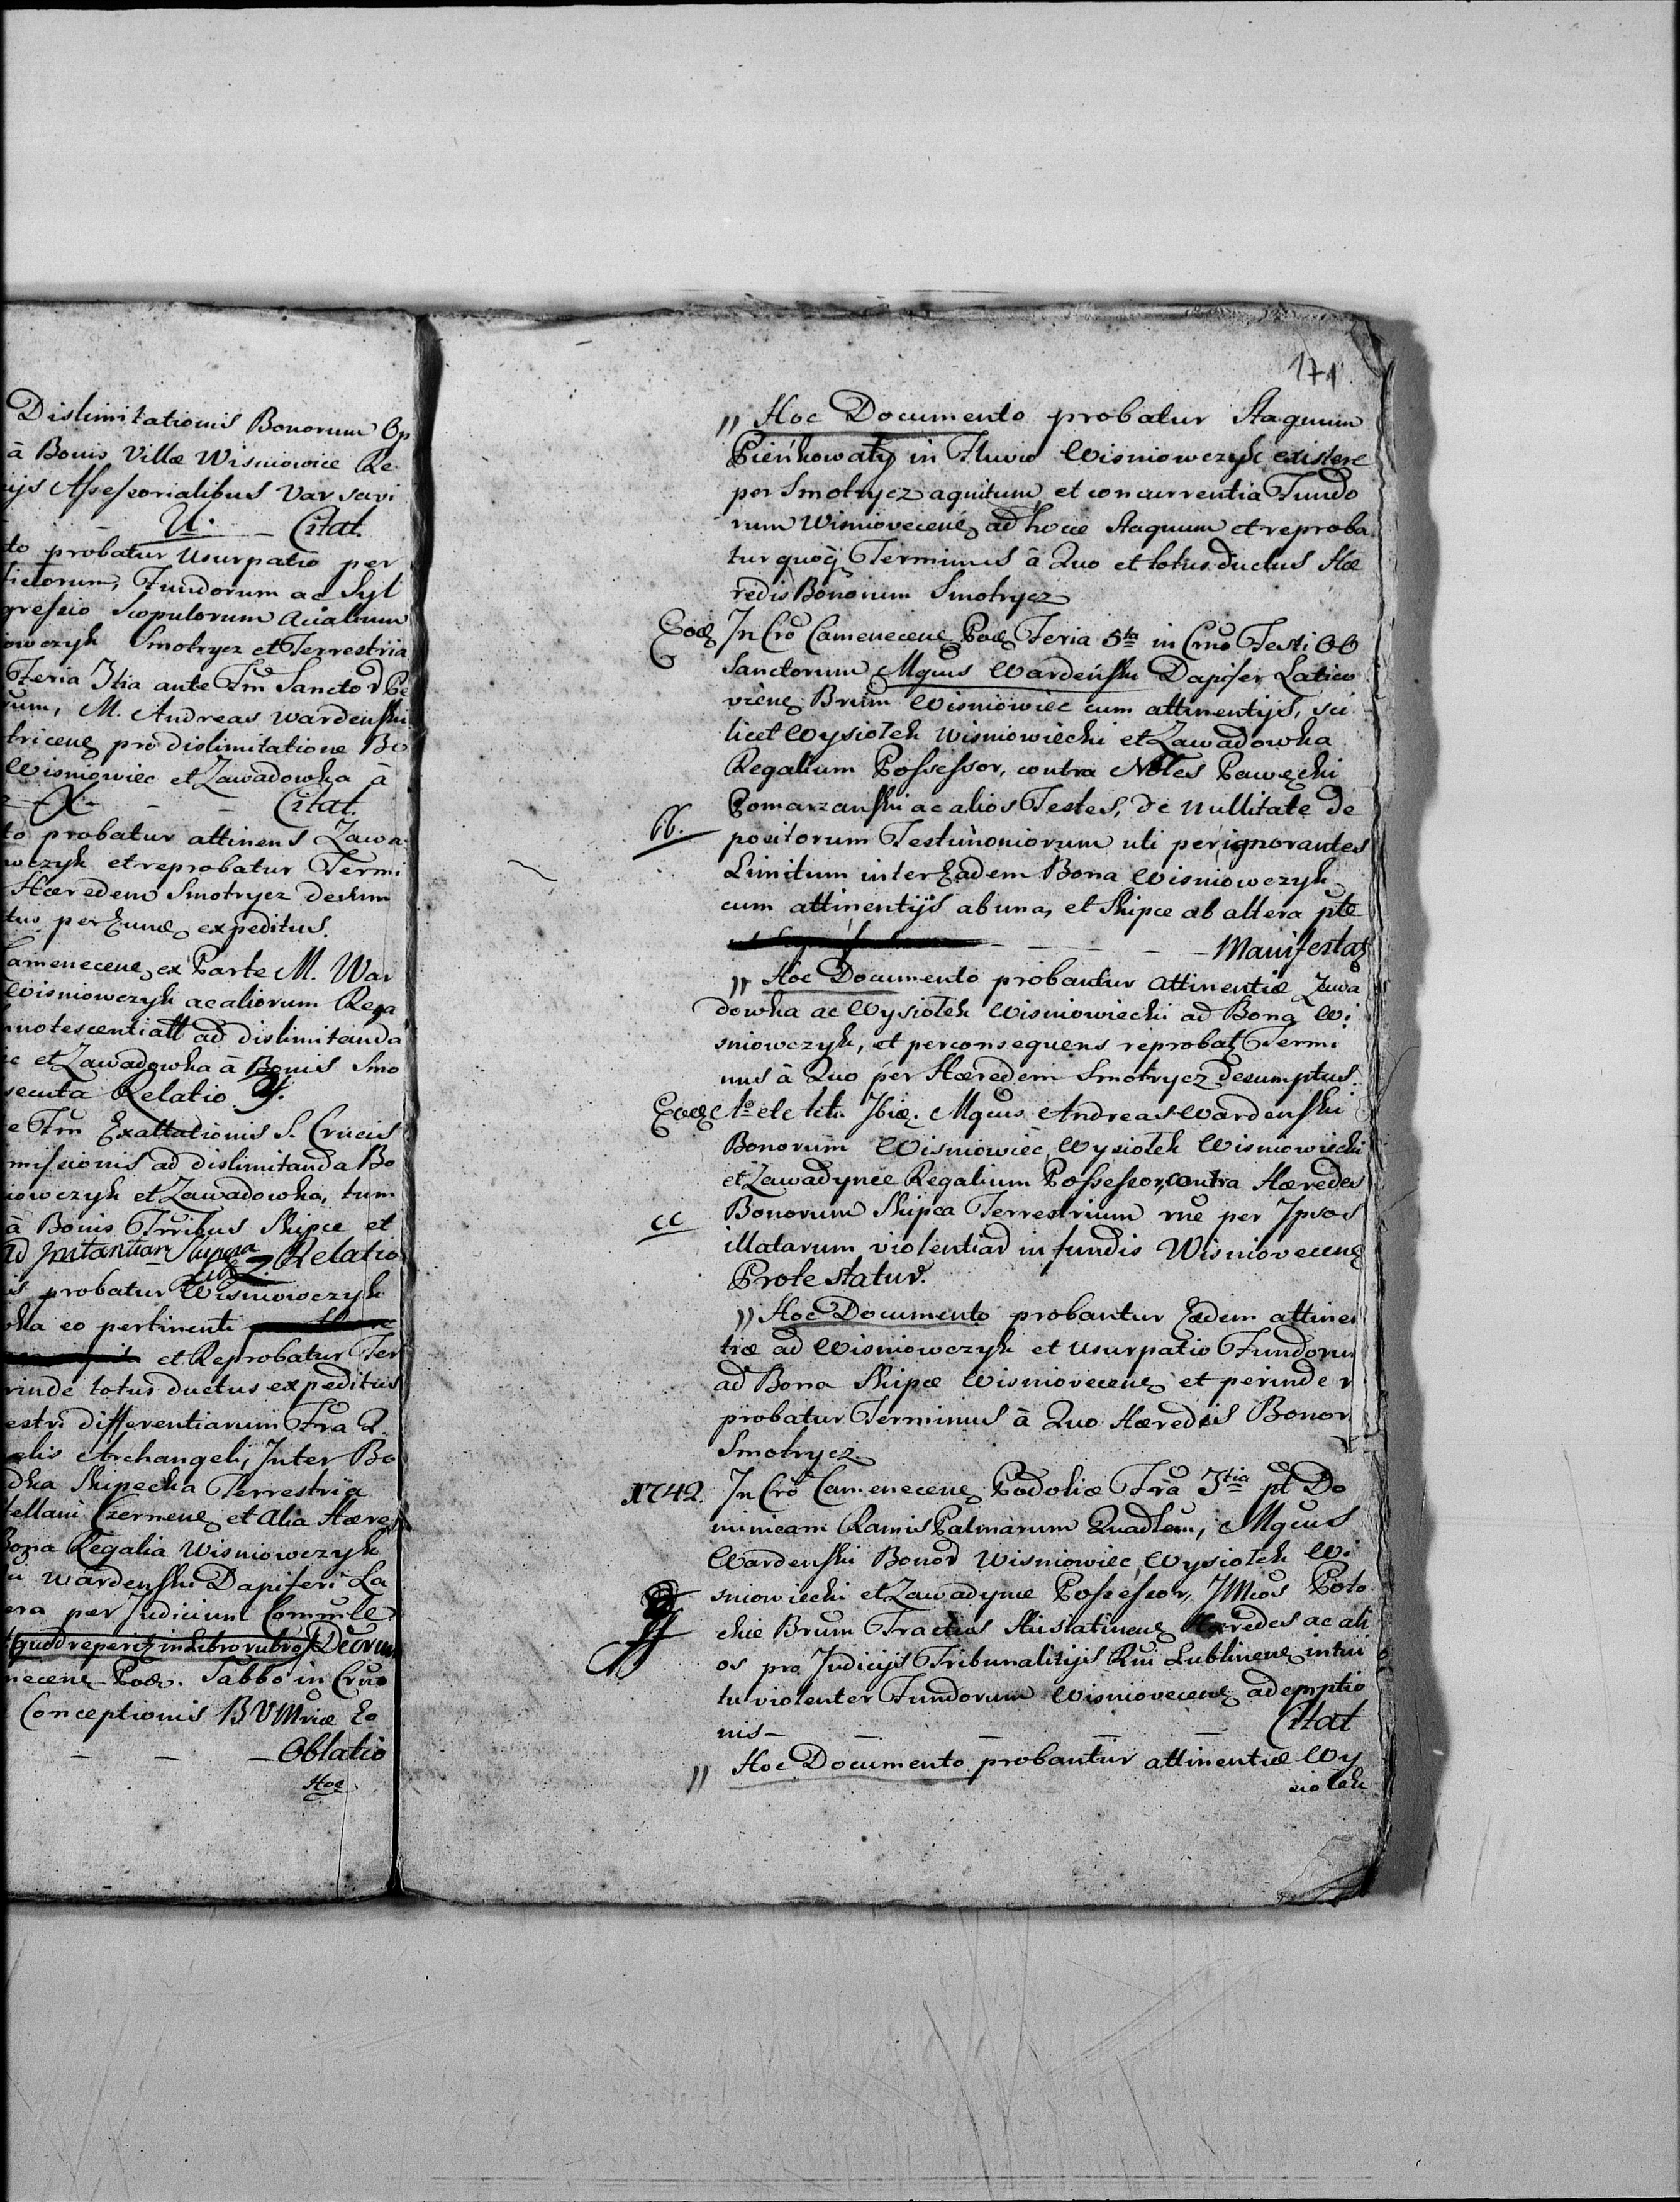 Dislimitationis Bonorum Op
à Bonis Villæ Wisniowice Re
ijs Assessorialibus Varsavi
U. - Citat.
to probatur Usurpatio per
fictorum, Fundorum ac Syl
gressio Scopulorum Acialium
owczyk Smotrycz et Terrestria
Feria 3tia ante Fm Sanctor Pe
rum, M. Andreas Wardenski
tricen pro dislimitatione Bo
Wisniowiec et Zawadowka à
X - - Citat.
to probatur attinens Zawa
wczyk et reprobatur Termi
Hæredem Smotrycz desum
tus per Eund expeditus.
Camenecen ex Parte M. War
Wisniowczyk ac aliorum Rega
nnotescentiall ad dislimitanda
ic et Zawadowka à Bonis Smo
secuta Relatio Y.
e Fm Exaltationis S. Crucis
missionis ad dislimitanda Bo
iowczyk et Zawadowka, tum
à Bonis Trribus Skipce et
ad Instantiam Z. Relatio
is probatur Wisniowczyk
ka eo pertinenti
et Reprobatur Ter
rinde totus ductus expeditus
estri differentiarum Fra 2.
elis Archangeli, Inter Bo
dka Skipecka Terrestria
tellani Czernen et Alia Hære
Bona Regalia Wisniowczyk
u Wardenski Dapiferi La
era per Judicium Commle
quod reperit in Libro rubro Decrum
necen Pod. Sabbo in Crno
Conceptionis BVMriæ Eo
- - - Oblatio
Hoc
171
„ Hoc Documento probatur Stagnum
Pieńkowaty in Fluvio Wisniowczyk existere
per Smotrycz aquitum et concurrentia Fundo
rum Wisniovecen ad hocce Stagnum et reproba
tur quoq Terminus à Quo et totus ductus Hæ
redis Bonorum Smotrycz
Eod In Cro Camenecen Pod Feria 5ta in Crno Festi OO
Sanctorum Mgcus Wardeński Dapifer Laticz
vien Brum Wisniowiec cum attinentijs, sci
licet Wysiołek Wisniowiecki et Zawadowka
Regalium Possessor, contra Nbles Pawęcki
Pomarzanski ac alios Testes, de nullitate de
bb. positorum Testimoniorum uti per ignorantes
Limitum inter Eadem Bona Wisniowczyk
cum attinentijs ab una, et Skipce ab altera pte
- - - Manifestat
„ Hoc Documento probantur attinentiæ Zawa
dowka ac Wysiołek Wisniowiecki ad Bona Wi
sniowczyk, et per consequens reprobat Termi
nus à Quo per Hæredem Smotrycz desumptus.
Eod Ao etc tit. Ibid. Mgcus Andreas Wardenski
Bonorum Wisniowiec, Wysiołek Wisniowiecki
et Zawadynce Regalium Possessor, contra Hæredes
cc Bonorum Skipca Terrestrium rne per Ipsos
illatarum violentiar in fundis Wisniovecen
Protestatur.
„ Hoc Documento probantur Eædem attinen
tiæ ad Wisniowczyk et Usurpatio Fundorum
ad Bona Skipce Wisniovecen et perinde r
probatur Terminus à Quo Hæredis Bonor
Smotrycz.
1742. In Cro Camenecen Podoliæ Fra 3tia pt Do
minicam Ramis Palmarum Quadlem, Mgcus
Wardenski Bonor Wisniowiec, Wysiołek Wi
sniowiecki et Zawadynce Possessor, Illmos Poto
ckie Brum Tractus Husiatinen Hæredes ac ali
os pro Judicijs Tribunalitijs Rni Lublinen intui
tu violenter Fundorum Wisniovecen ademptio
nis - - - - Citat
„ Hoc Documento probantur attinentiæ Wy
siołek